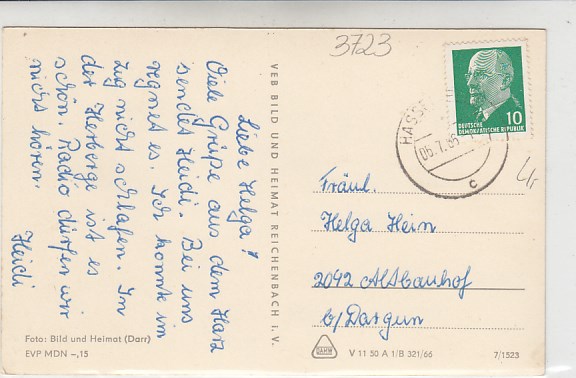 3723
Liebe Helga!
Viele Grüße aus dem Harz
sendet Heidi. Bei uns
regnet es. Ich konnte im
Zug nicht schlafen. In
der Herberge ist es
schön. Radio dürfen wir
nicht hören.
Heidi
Foto: Bild und Heimat (Darr)
EVP MDN -,15
VEB BILD UND HEIMAT REICHENBACH i. V.
10
DEUTSCHE
DEMOKRATISCHE REPUBLIK
c
Fräul.
Helga Hein
2042 Altbauhof
b/ Dargun
V 11 50 A 1/B 321/66
7/1523